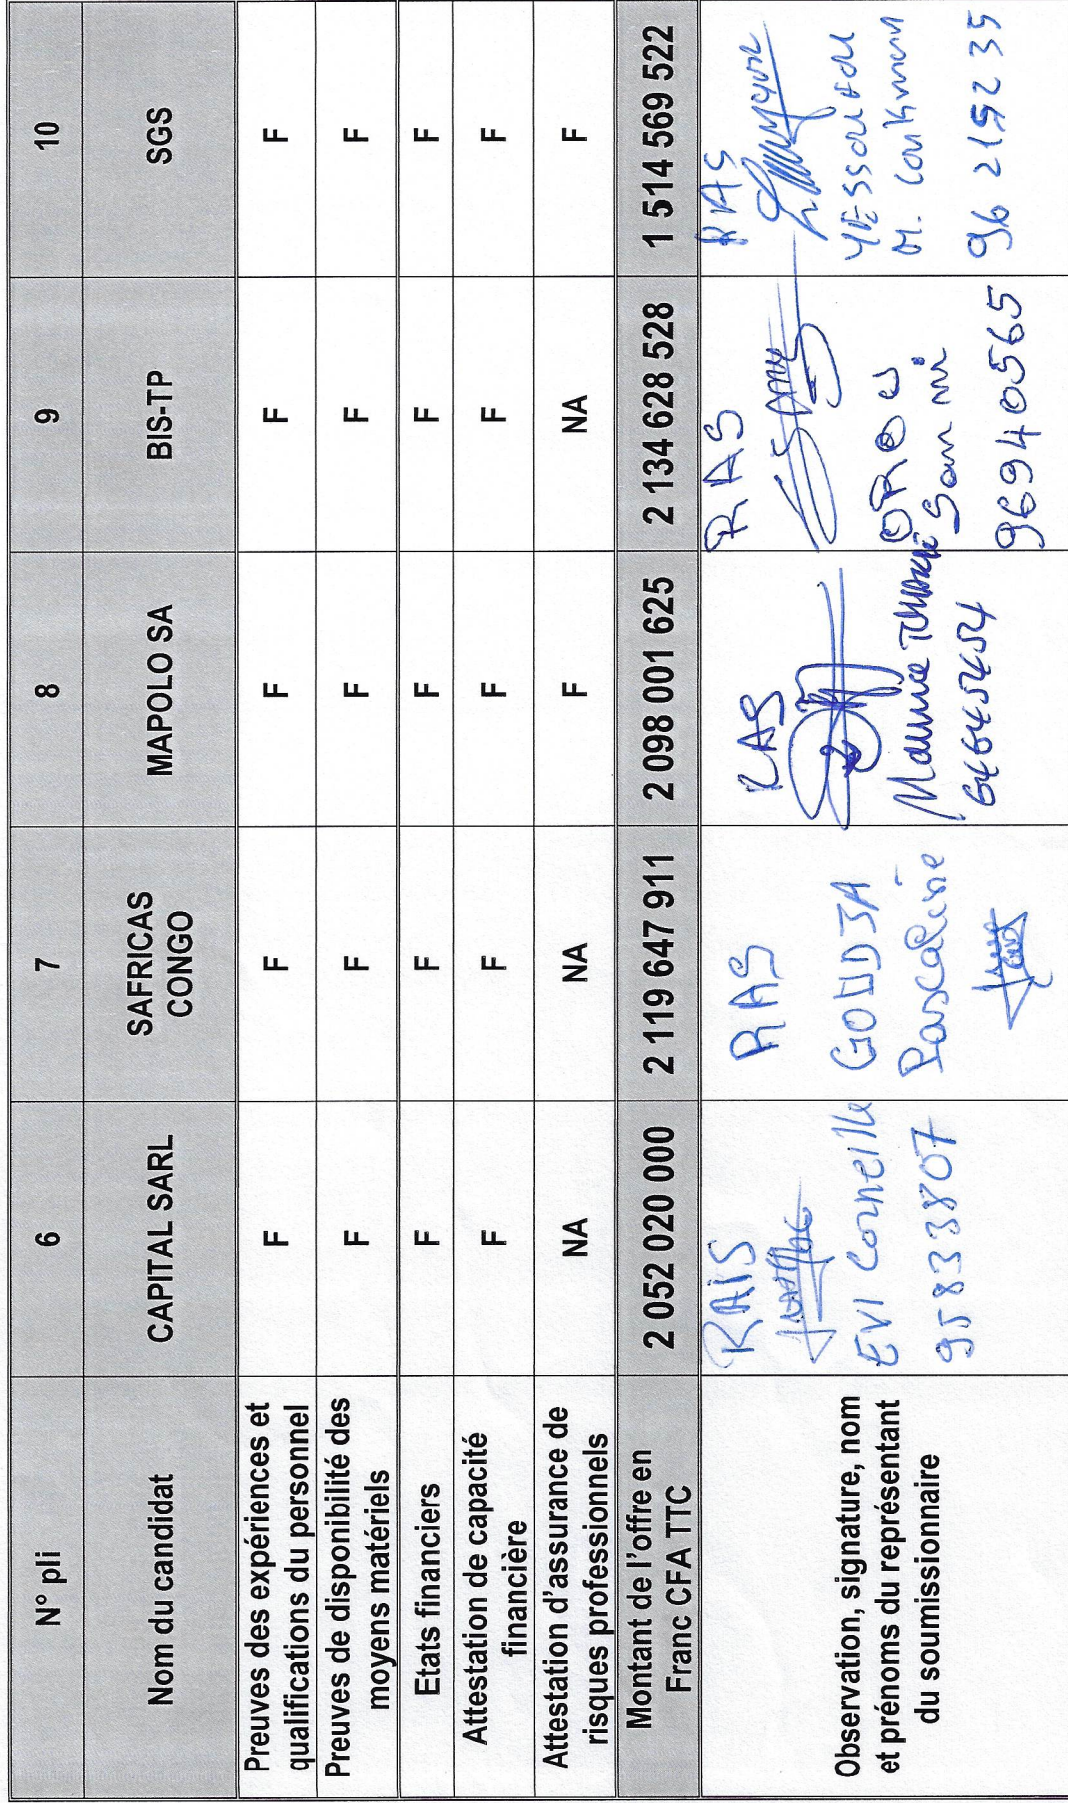 N° pli 6 7 8 9 10
Nom du candidat CAPITAL SARL SAFRICAS CONGO MAPOLO SA BIS-TP SGS
Preuves des expériences et qualifications du personnel F F F F F
Preuves de disponibilité des moyens matériels F F F F F
Etats financiers F F F F F
Attestation de capacité financière F F F F F
Attestation d'assurance de risques professionnels NA NA F NA F
Montant de l'offre en Franc CFA TTC 2 052 020 000 2 119 647 911 2 098 001 625 2 134 628 528 1 514 569 522
Observation, signature, nom
et prénoms du représentant
du soumissionnaire
RAS
EVI Corneille
95833807
RAS
Pascaline
RAS
Maurice
RAS
OROU
Sanni
96940565
RAS
96 215235